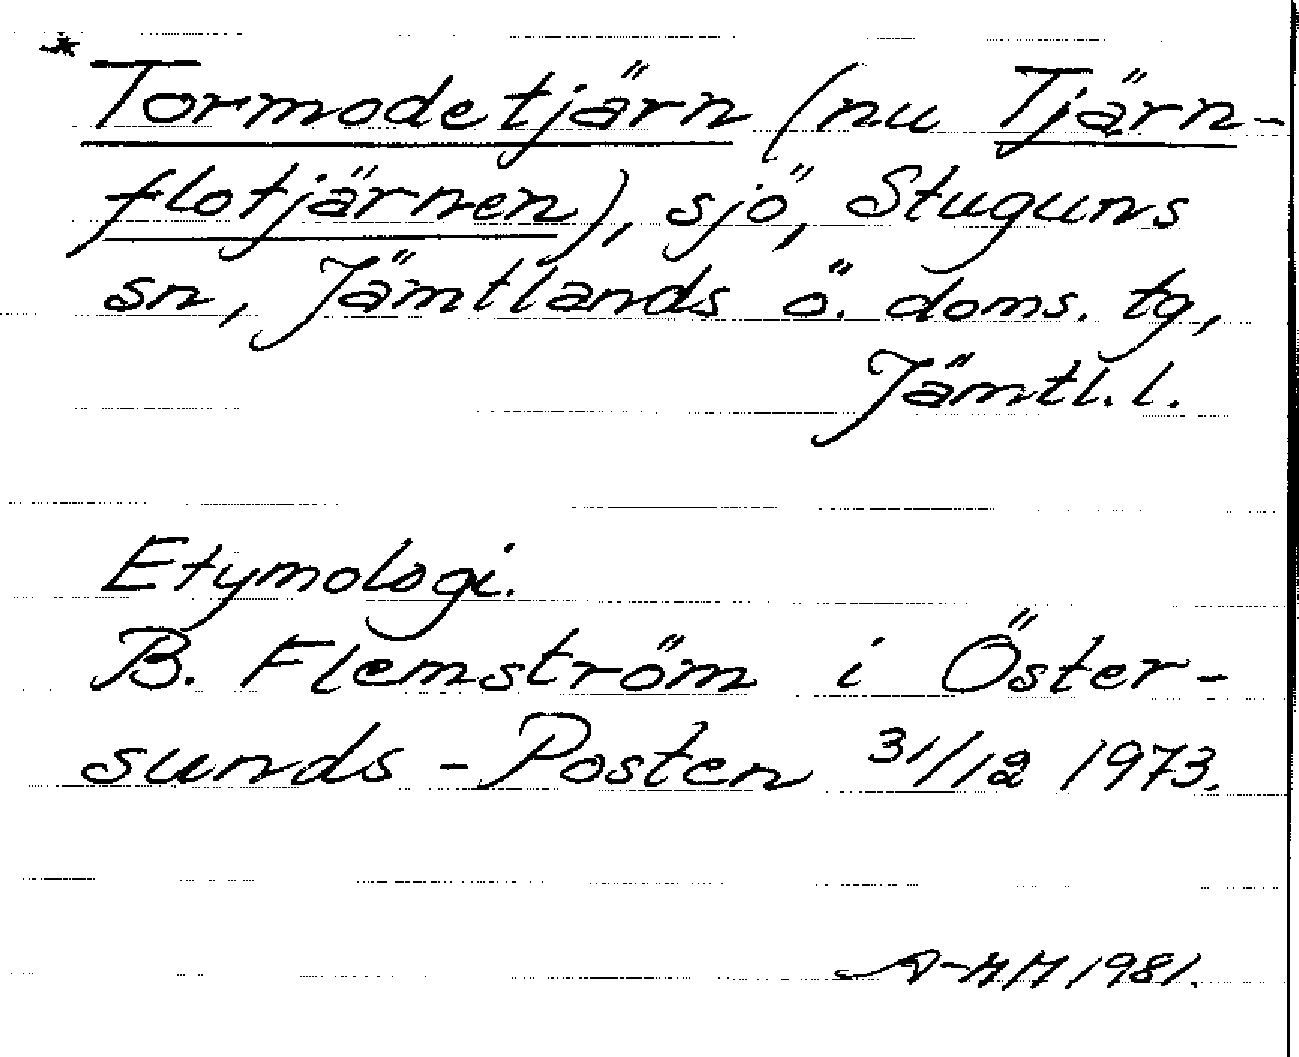 *
Tormodetjärn (nu Tjärn-
flotjärnen), sjö, Stuguns
sn, Jämtlands ö. doms. tg,
Jämtl. l.
Etymologi.
B. Flemström i Öster-
sunds-Posten 31/12 1973.
A-MH 1981.